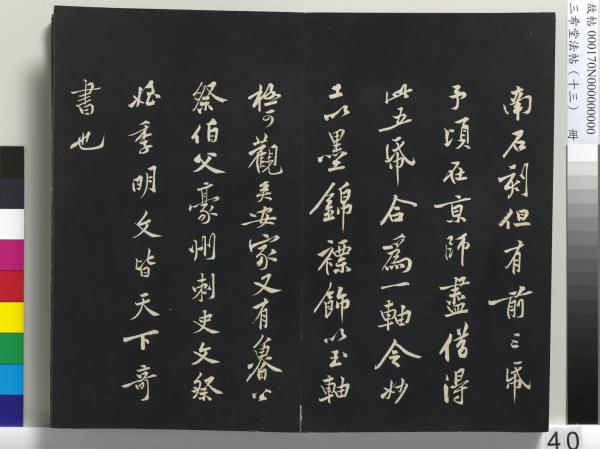 故帖 000170N000000000
三希堂法帖（十三） 冊
南石刻但有前三帋
予頃在京師盡借得
此五帋合爲一軸令妙
工以墨錦褾飾以玉軸
極可觀矣安家又有魯公
祭伯父豪州刺史文祭
姪季明文皆天下奇
書也
40